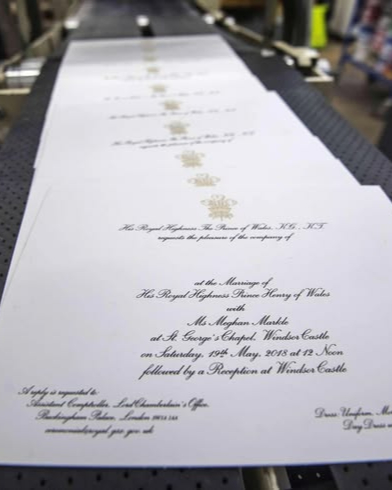 His Royal Highness The Prince of Wales, K.G., K.T.
requests the pleasure of the company of
at the Marriage of
His Royal Highness Prince Henry of Wales
with
Ms Meghan Markle
at St. George's Chapel, Windsor Castle
on Saturday, 19th May, 2018 at 12 Noon
followed by a Reception at Windsor Castle
A reply is requested to:
Assistant Comptroller, Lord Chamberlain's Office,
Buckingham Palace, London SW1A 1AA
Dress: Uniform,
Day Dress